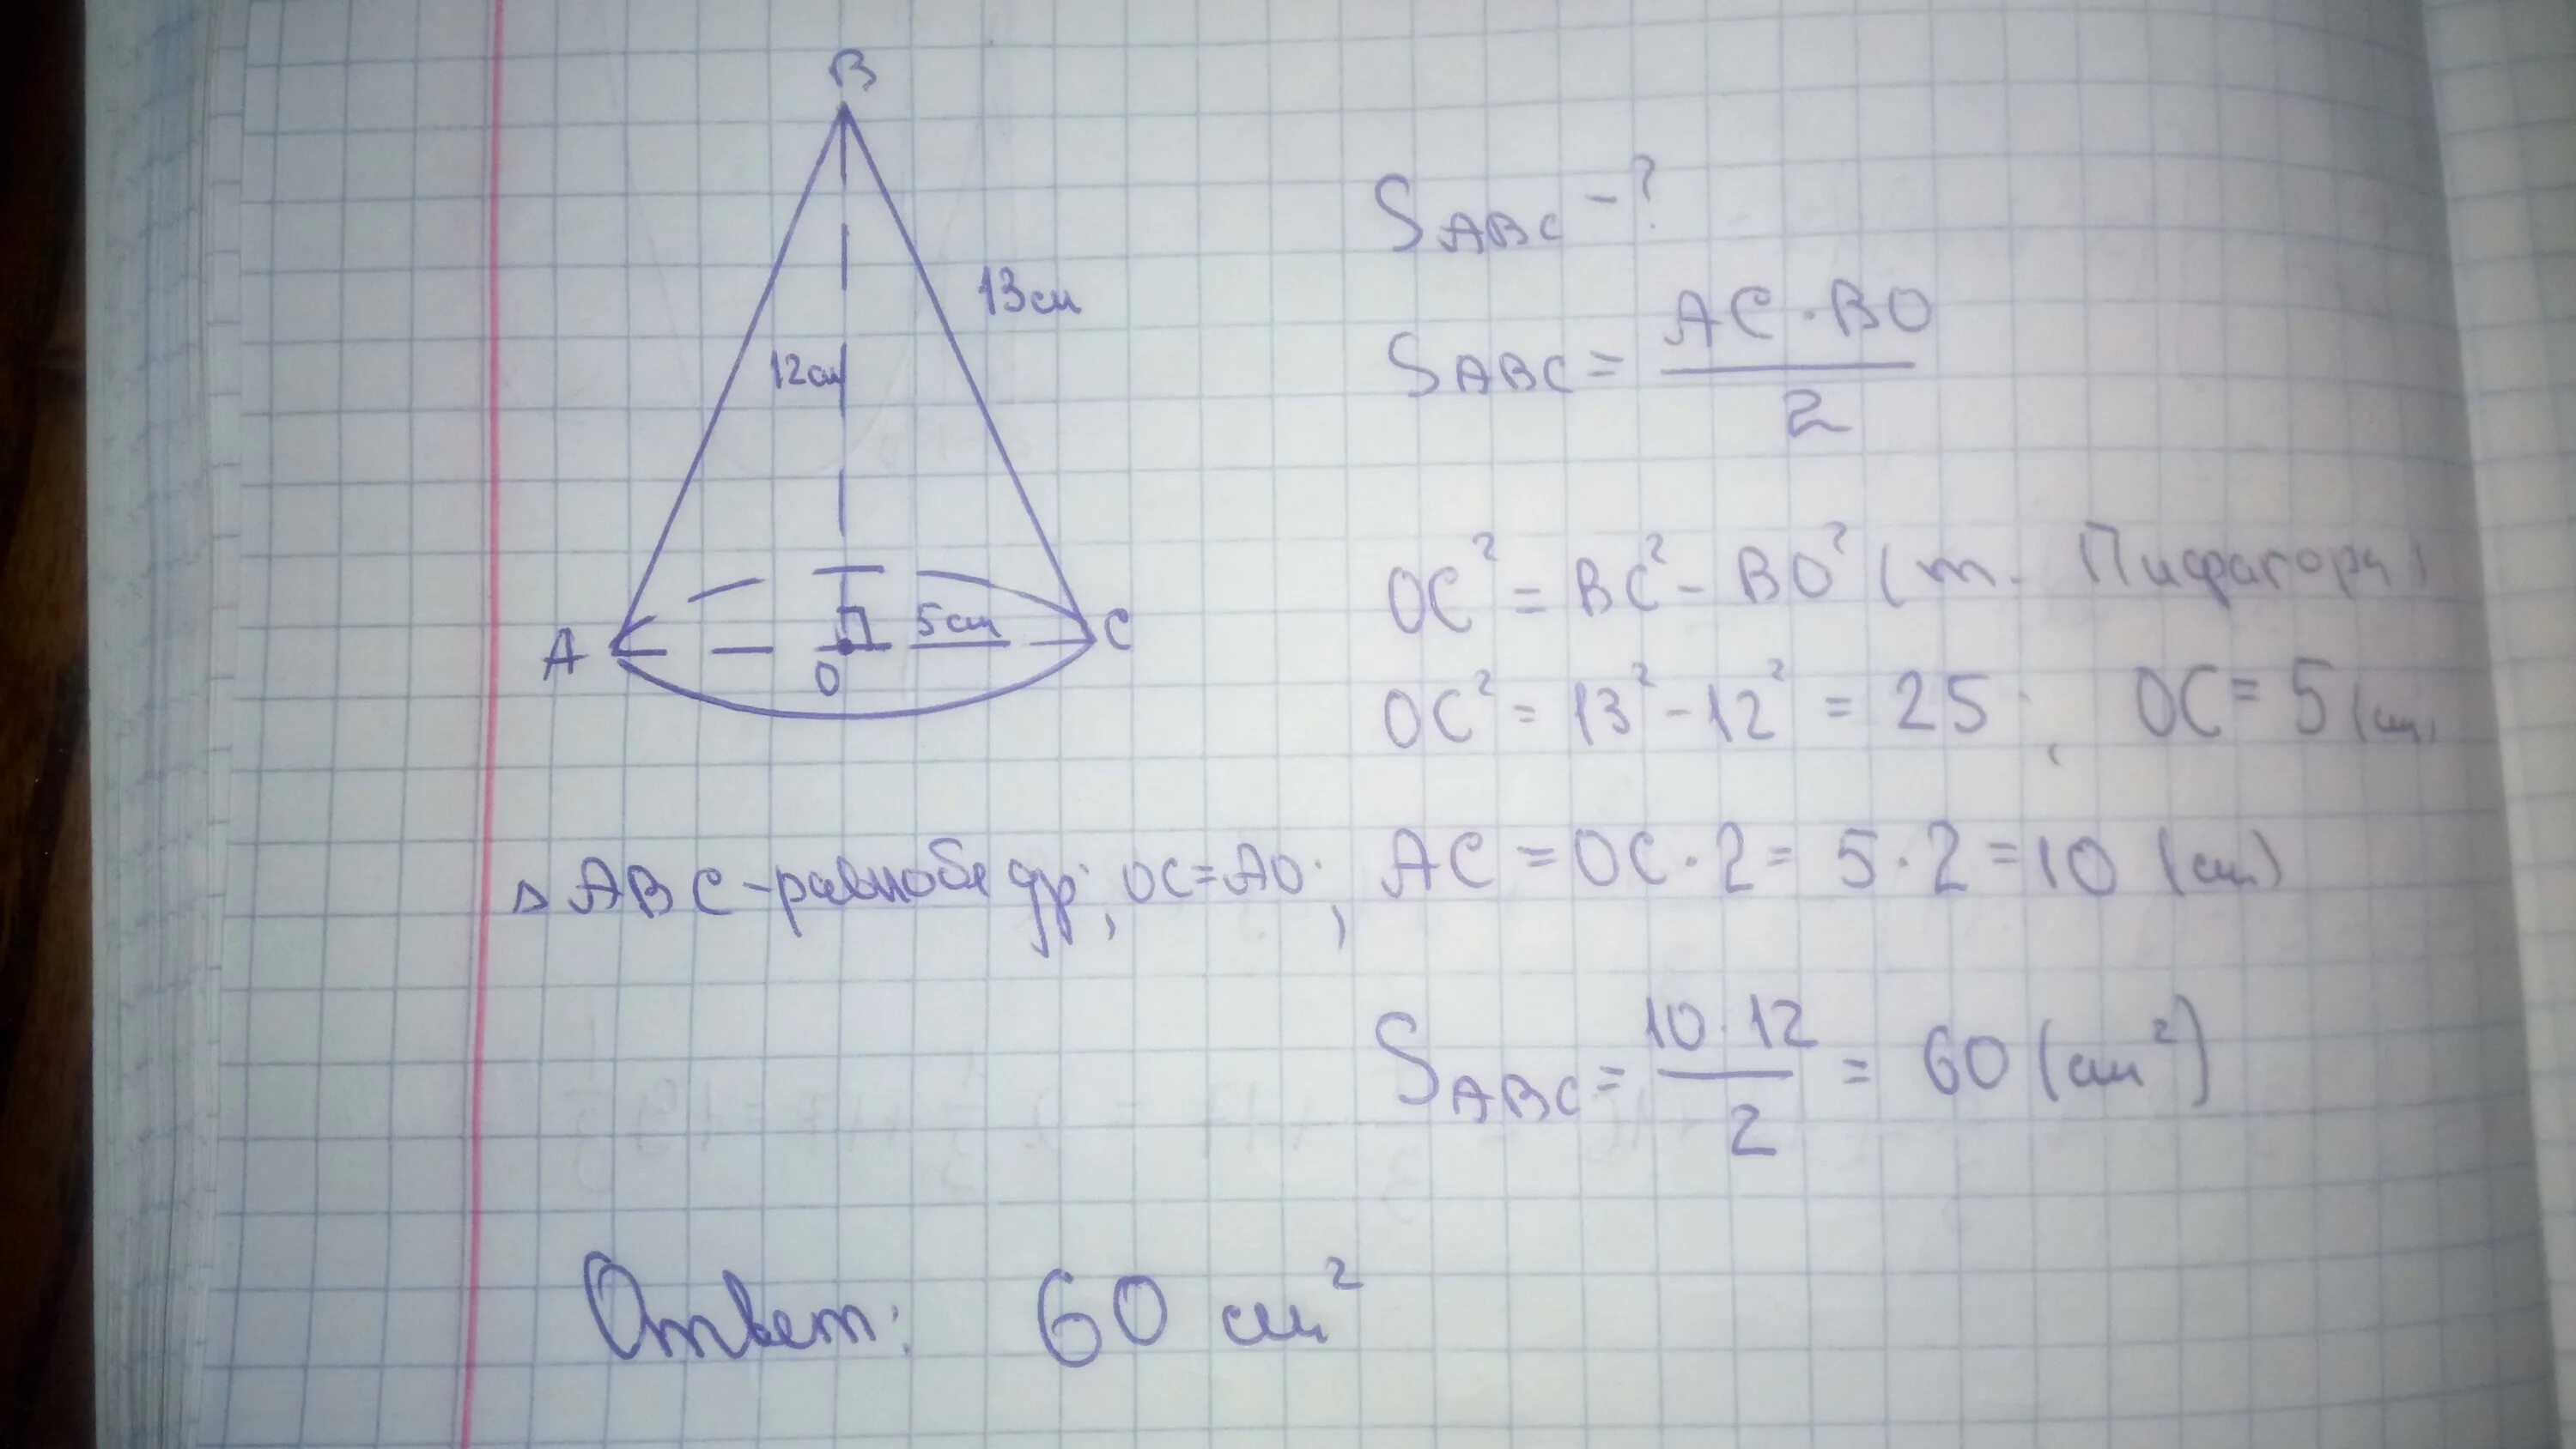 B
13 см
12 см
5 см
A
O
C
S ABC - ?
S ABC = AC · BO / 2
OC² = BC² - BO² (т. Пифагора)
OC² = 13² - 12² = 25; OC = 5 (см)
△ ABC - равнобедр; OC = AO; AC = OC · 2 = 5 · 2 = 10 (см)
S ABC = 10 · 12 / 2 = 60 (см²)
Ответ: 60 см²